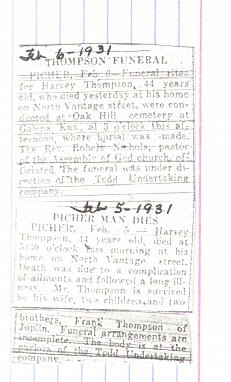 Feb 6-1931
THOMPSON FUNERAL
PICHER, Feb. 6—Funeral rites
for Harvey Thompson, 44 years
old, who died yesterday at his home
on North Vantage street, were con-
ducted at Oak Hill cemetery at
Galena, Kas., at 3 o'clock this af-
ternoon, where burial was made.
The Rev. Robert Nichols, pastor
of the Assembly of God church, of-
ficiated. The funeral was under di-
rection of the Todd Undertaking
company.
Feb 5-1931
PICHER MAN DIES
PICHER, Feb. 5 — Harvey
Thompson, 44 years old, died at
o'clock this morning at his
home on North Vantage street.
Death was due to a complication
of ailments and followed a long ill-
ness. Mr. Thompson is survived
by his wife, two children and two
brothers, Frank Thompson of
Joplin. Funeral arrangements are
incomplete. The body is at the
of the Todd Undertaking
company.